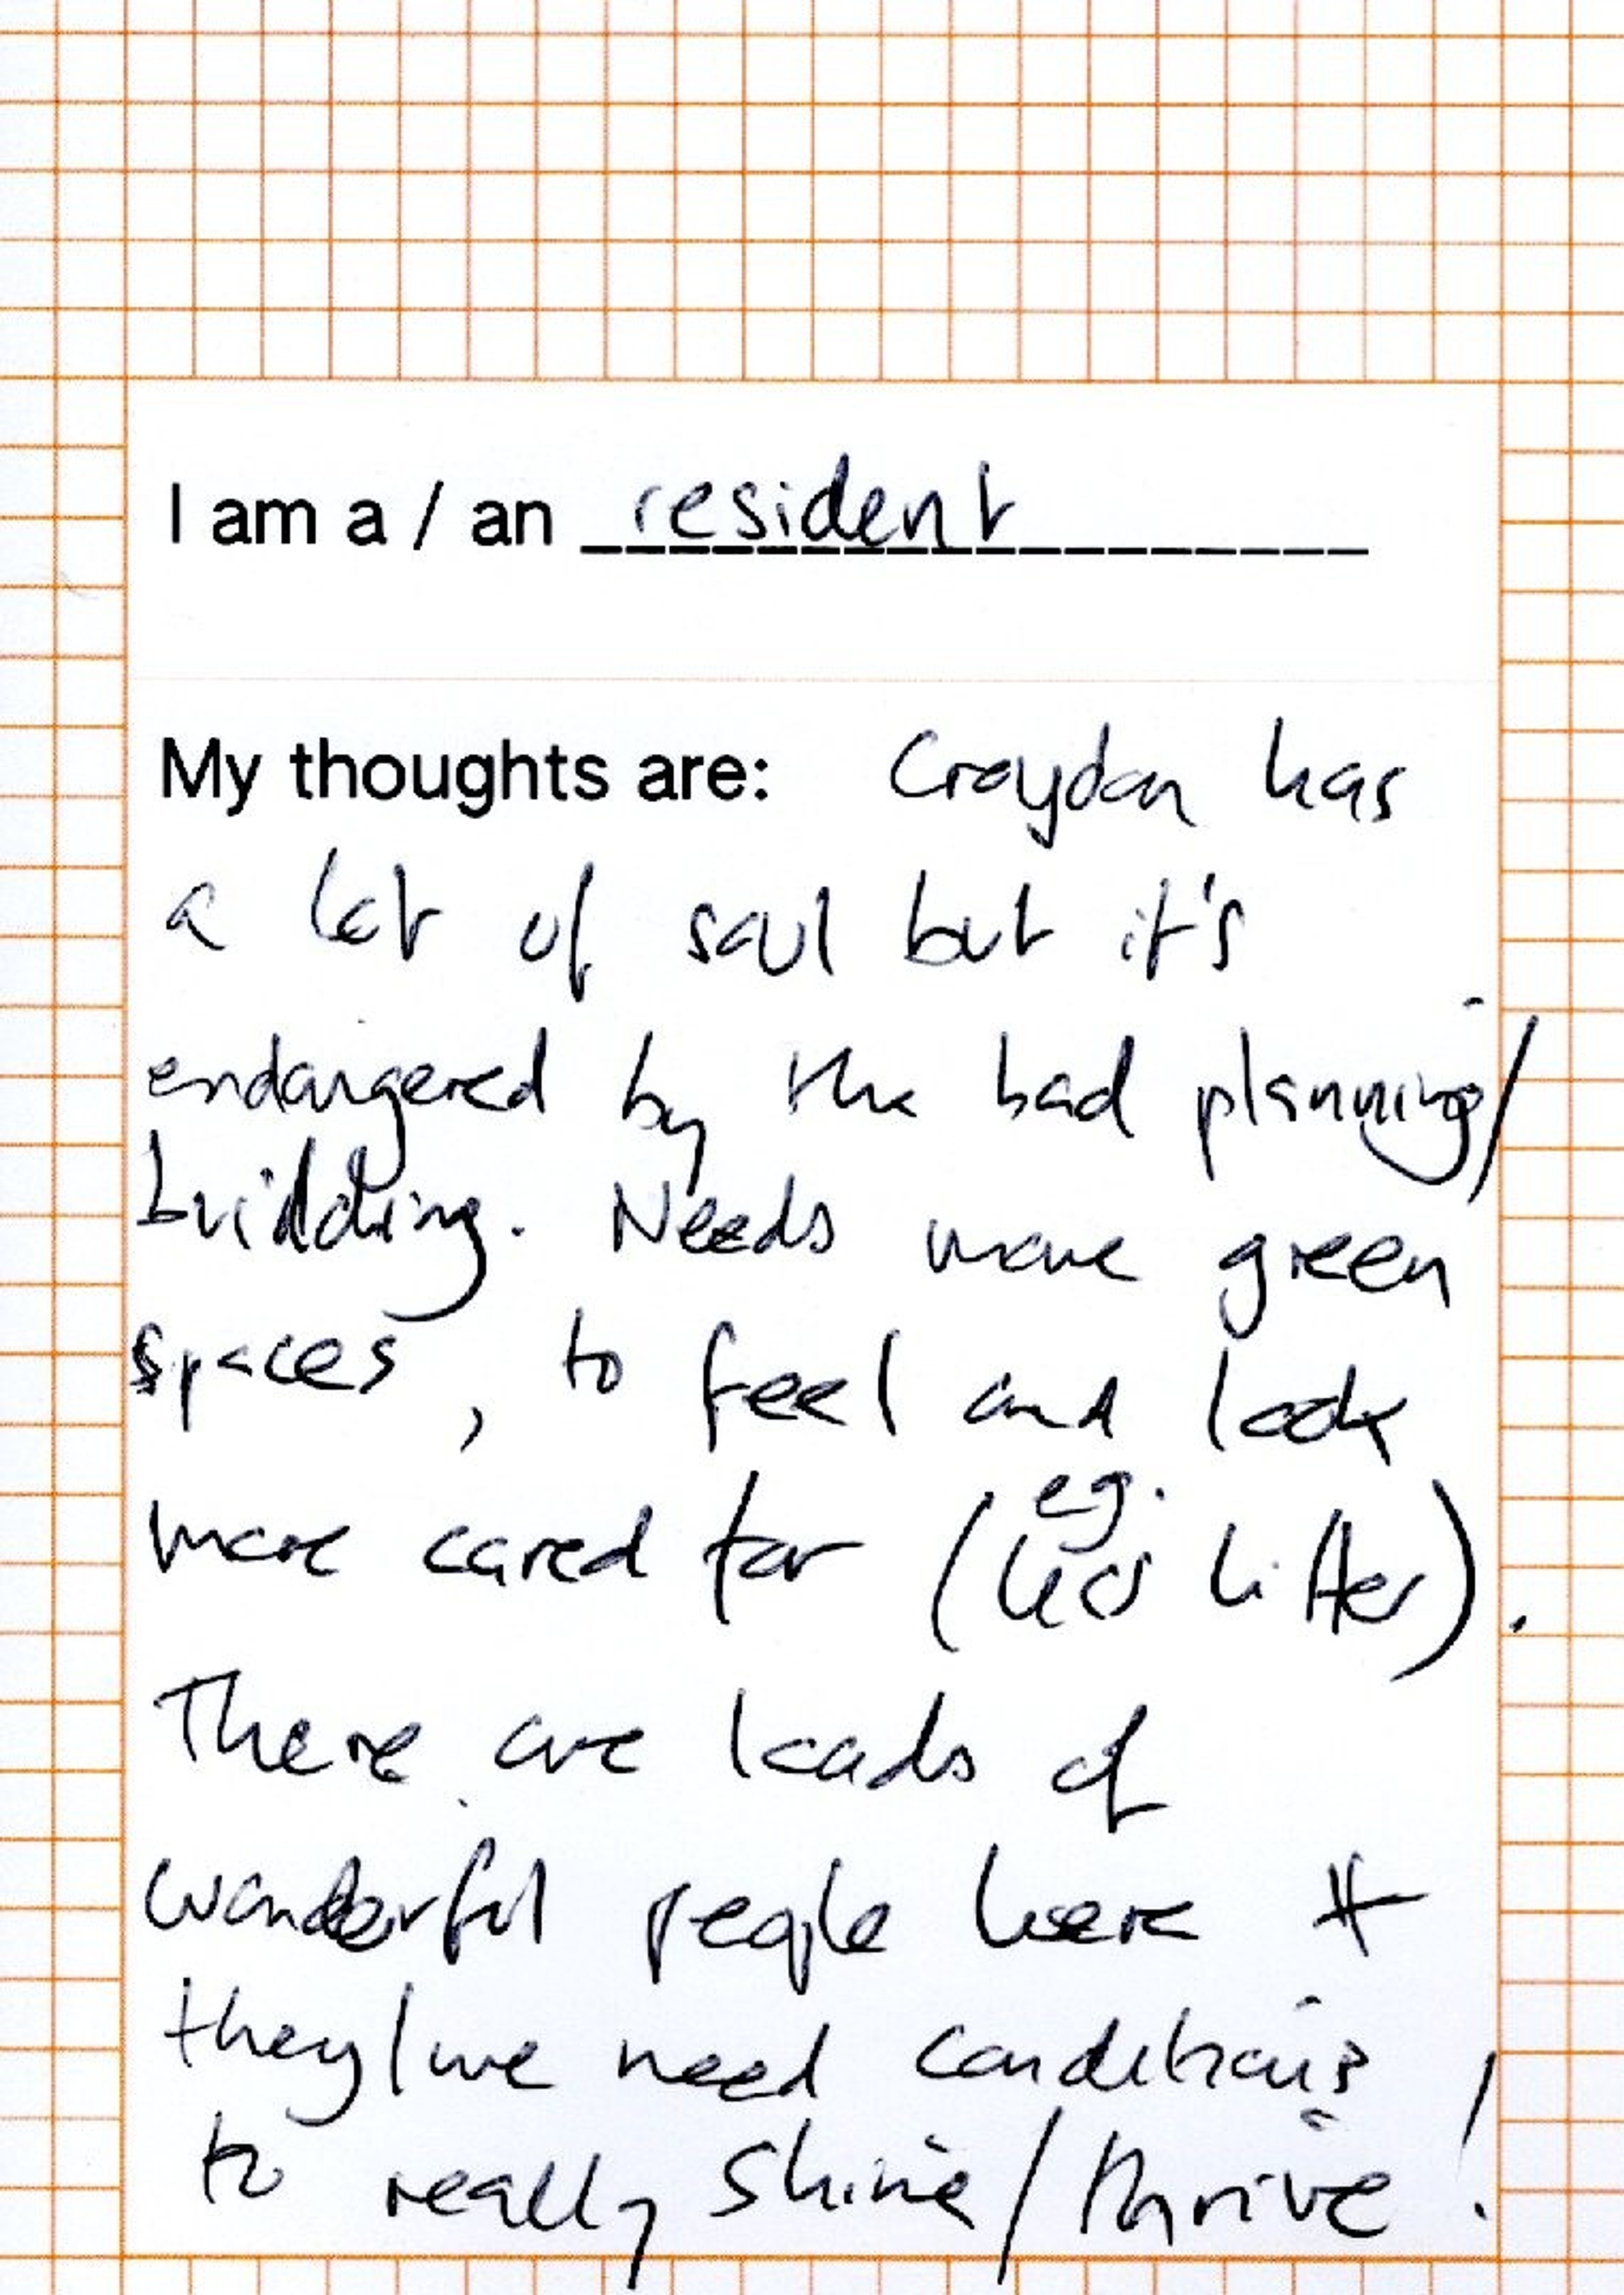 I am a / an resident
My thoughts are: Croydon has
a lot of soul but it's
endangered by the bad planning/
building. Needs more green
spaces, to feel and look
more cared for (eg. less litter).
There are loads of
wonderful people here +
they/we need conditions
to really shine/thrive!